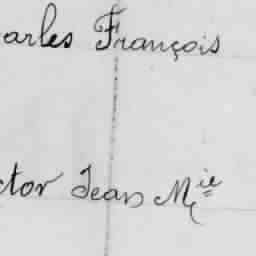 arles François
ctor Jean M^ie